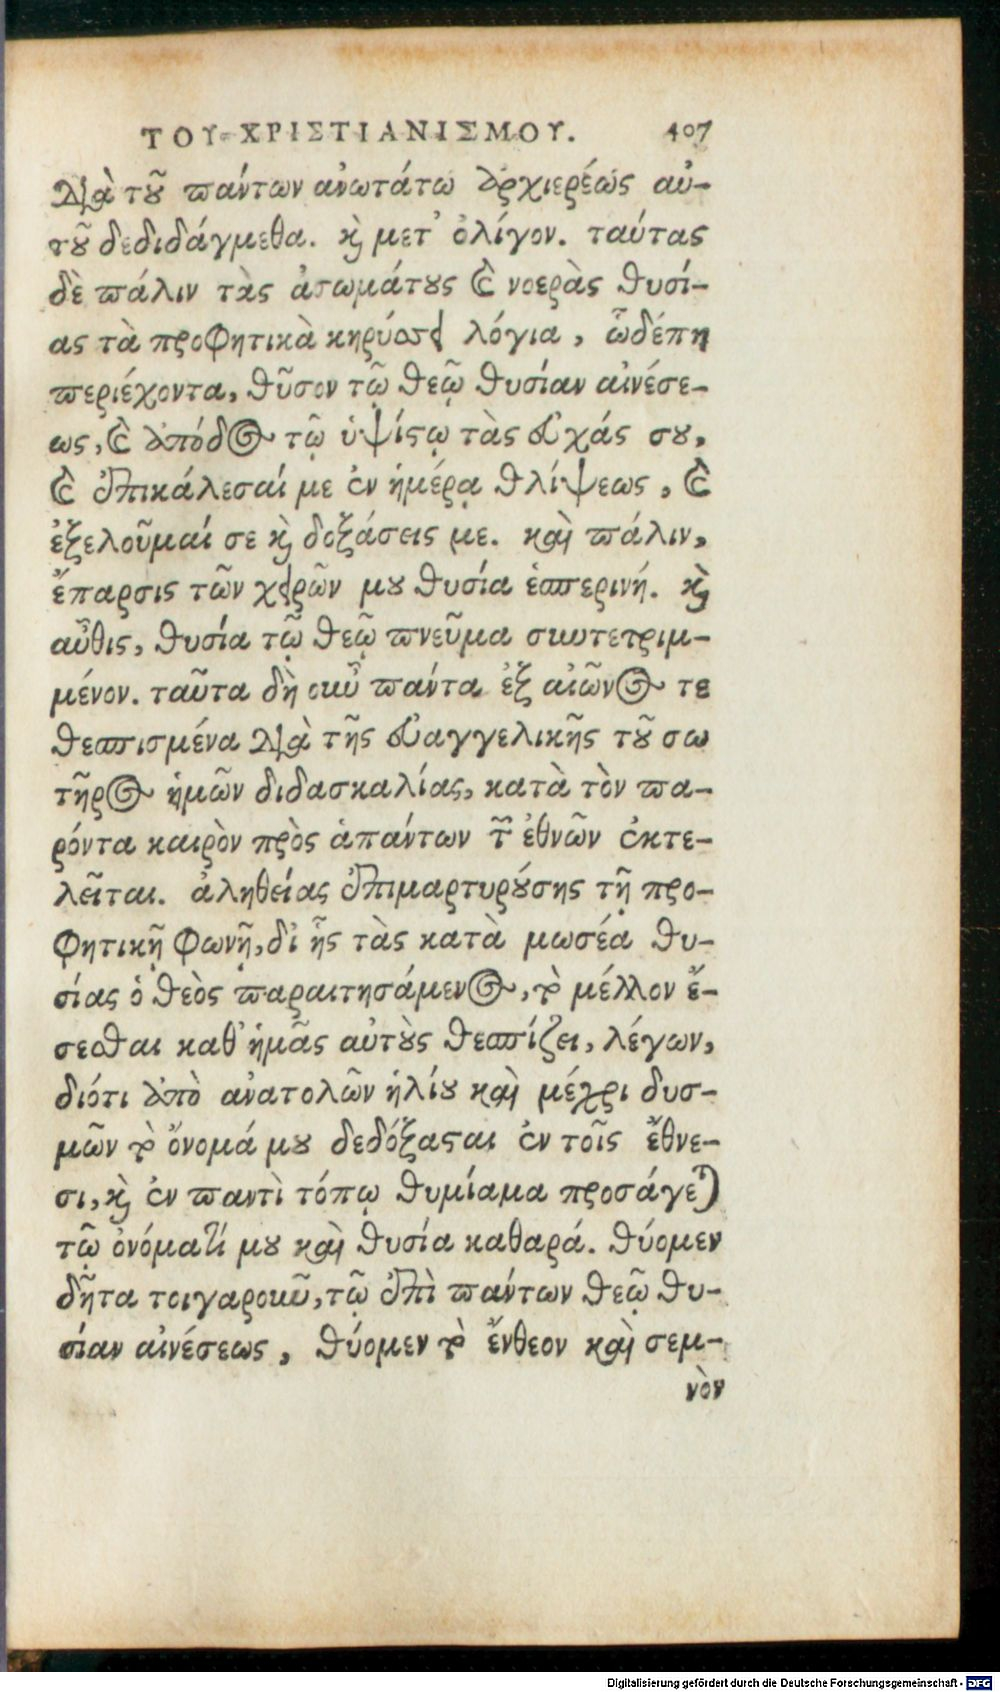 ΤΟΥ ΧΡΙΣΤΙΑΝΙΣΜΟΥ. 407
διὰ τοῦ πάντων ἀνωτάτω ἀρχιερέως αὐ-
τοῦ δεδιδάγμεθα. καὶ μετ' ὀλίγον. ταύτας
δὲ πάλιν τὰς ἀσωμάτους καὶ νοερὰς θυσί-
ας τὰ προφητικὰ κηρύσσει λόγια, ὧδέπη
περιέχοντα, θῦσον τῷ θεῷ θυσίαν αἰνέσε-
ως, καὶ ἀπόδος τῷ ὑψίστῳ τὰς εὐχάς σου,
καὶ ἐπικάλεσαί με ἐν ἡμέρᾳ θλίψεως, καὶ
ἐξελοῦμαί σε καὶ δοξάσεις με. καὶ πάλιν,
ἔπαρσις τῶν χειρῶν μου θυσία ἑσπερινή. καὶ
αὖθις, θυσία τῷ θεῷ πνεῦμα συντετριμ-
μένον. ταῦτα δὴ οὖν πάντα ἐξ αἰῶνος τε
θεσπισμένα διὰ τῆς εὐαγγελικῆς τοῦ σω
τῆρος ἡμῶν διδασκαλίας, κατὰ τὸν πα-
ρόντα καιρὸν πρὸς ἁπάντων τῶν ἐθνῶν ἐκτε-
λεῖται. ἀληθείας ἐπιμαρτυρούσης τῇ προ-
φητικῇ φωνῇ, δι' ἧς τὰς κατὰ μωσέα θυ-
σίας ὁ θεὸς παραιτησάμενος, τὸ μέλλον ἔ-
σεσθαι καθ' ἡμᾶς αὐτοὺς θεσπίζει, λέγων,
διότι ἀπὸ ἀνατολῶν ἡλίου καὶ μέχρι δυσ-
μῶν τὸ ὄνομά μου δεδόξασται ἐν τοῖς ἔθνε-
σι, καὶ ἐν παντὶ τόπῳ θυμίαμα προσάγεται
τῷ ὀνόματί μου καὶ θυσία καθαρά. θύομεν
δῆτα τοιγαροῦν, τῷ ἐπὶ πάντων θεῷ θυ-
σίαν αἰνέσεως, θύομεν τὸ ἔνθεον καὶ σεμ-
νὸν
Digitalisierung gefördert durch die Deutsche Forschungsgemeinschaft - DFG